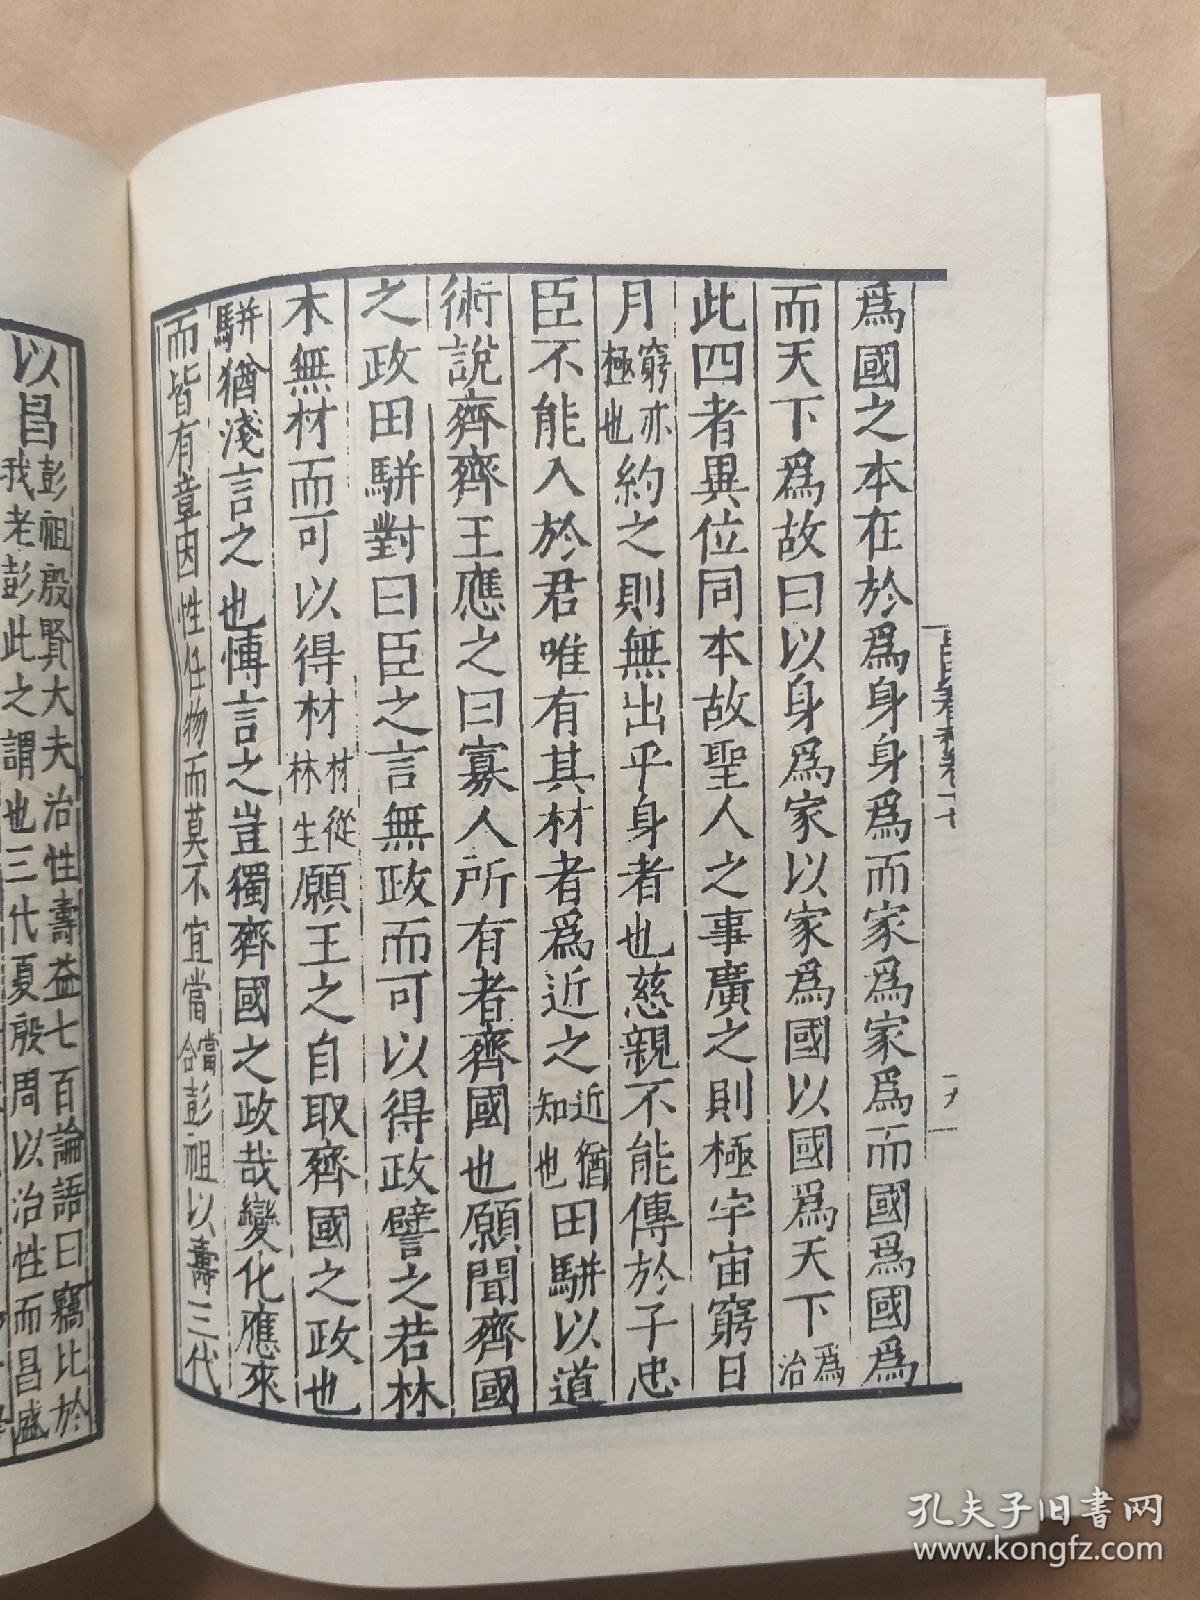 爲國之本在於爲身身爲而家爲家爲而國爲國爲
而天下爲故曰以身爲家以家爲國以國爲天下爲治
此四者異位同本故聖人之事廣之則極宇宙窮日
月窮亦極也約之則無出乎身者也慈親不能傳於子忠
臣不能入於君唯有其材者爲近之近猶知也田駢以道
術說齊齊王應之曰寡人所有者齊國也願聞齊國
之政田駢對曰臣之言無政而可以得政譬之若林
木無材而可以得材材從林生願王之自取齊國之政也
駢猶淺言之也博言之豈獨齊國之政哉變化應來
而皆有章因性任物而莫不宜當當合彭祖以壽三代
以昌彭祖殷賢大夫治性壽益七百論語曰竊比於我老彭此之謂也三代夏殷周以治性而昌盛
孔夫子旧书网
www.kongfz.com